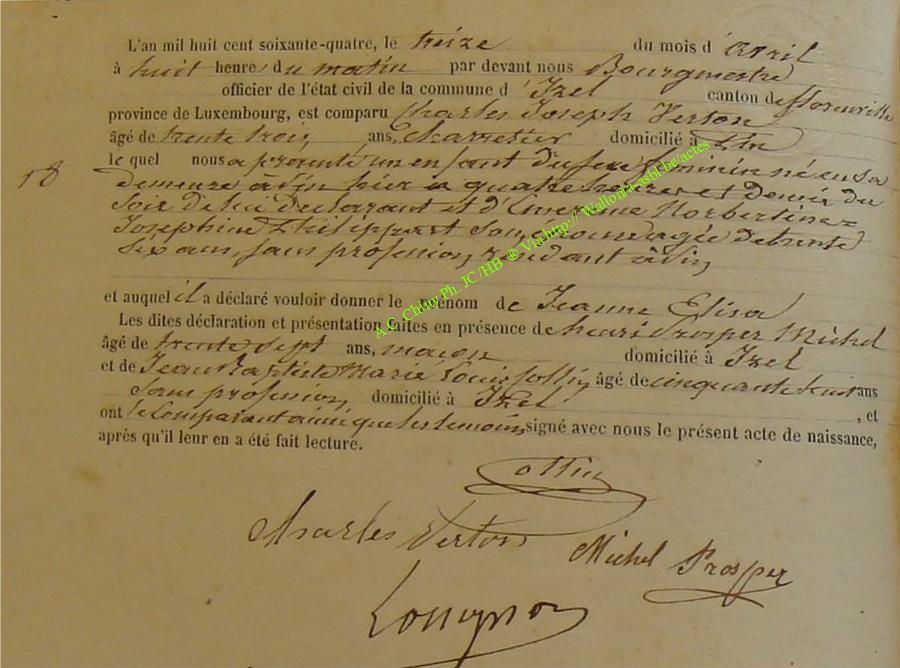 L'an mil huit cent soixante-quatre, le treize du mois d'avril
à huit heures du matin par devant nous Bourgmestre
officier de l'état civil de la commune d'Izel canton de florenville
province de Luxembourg, est comparu Charles Joseph Verton
âgé de trente trois ans, Charretier domicilié à
18
le quel nous a présenté un enfant du sexe féminin né en sa
demeure hier a quatre heures et demie du
soir de lui déclarant et d' Norbertine
Joséphine Philippart son épouse agée de trente
six ans, sans profession,
et auquel il a déclaré vouloir donner le prénom de Jeanne Elisa
Les dites déclaration et présentation faites en présence de henri Prosper Michel
âgé de trente sept ans, maçon domicilié à Izel
et de Jean Baptiste Marie Louis âgé de cinquante huit ans
sans profession, domicilié à Izel , et
ont le Comparant ainsi que les temoins signé avec nous le présent acte de naissance,
après qu'il leur en a été fait lecture.
Charles Verton
Michel Prosper
A.G. Chiny Ph. JC /HB ® Via http:// Wallonia-asbl.be/actes